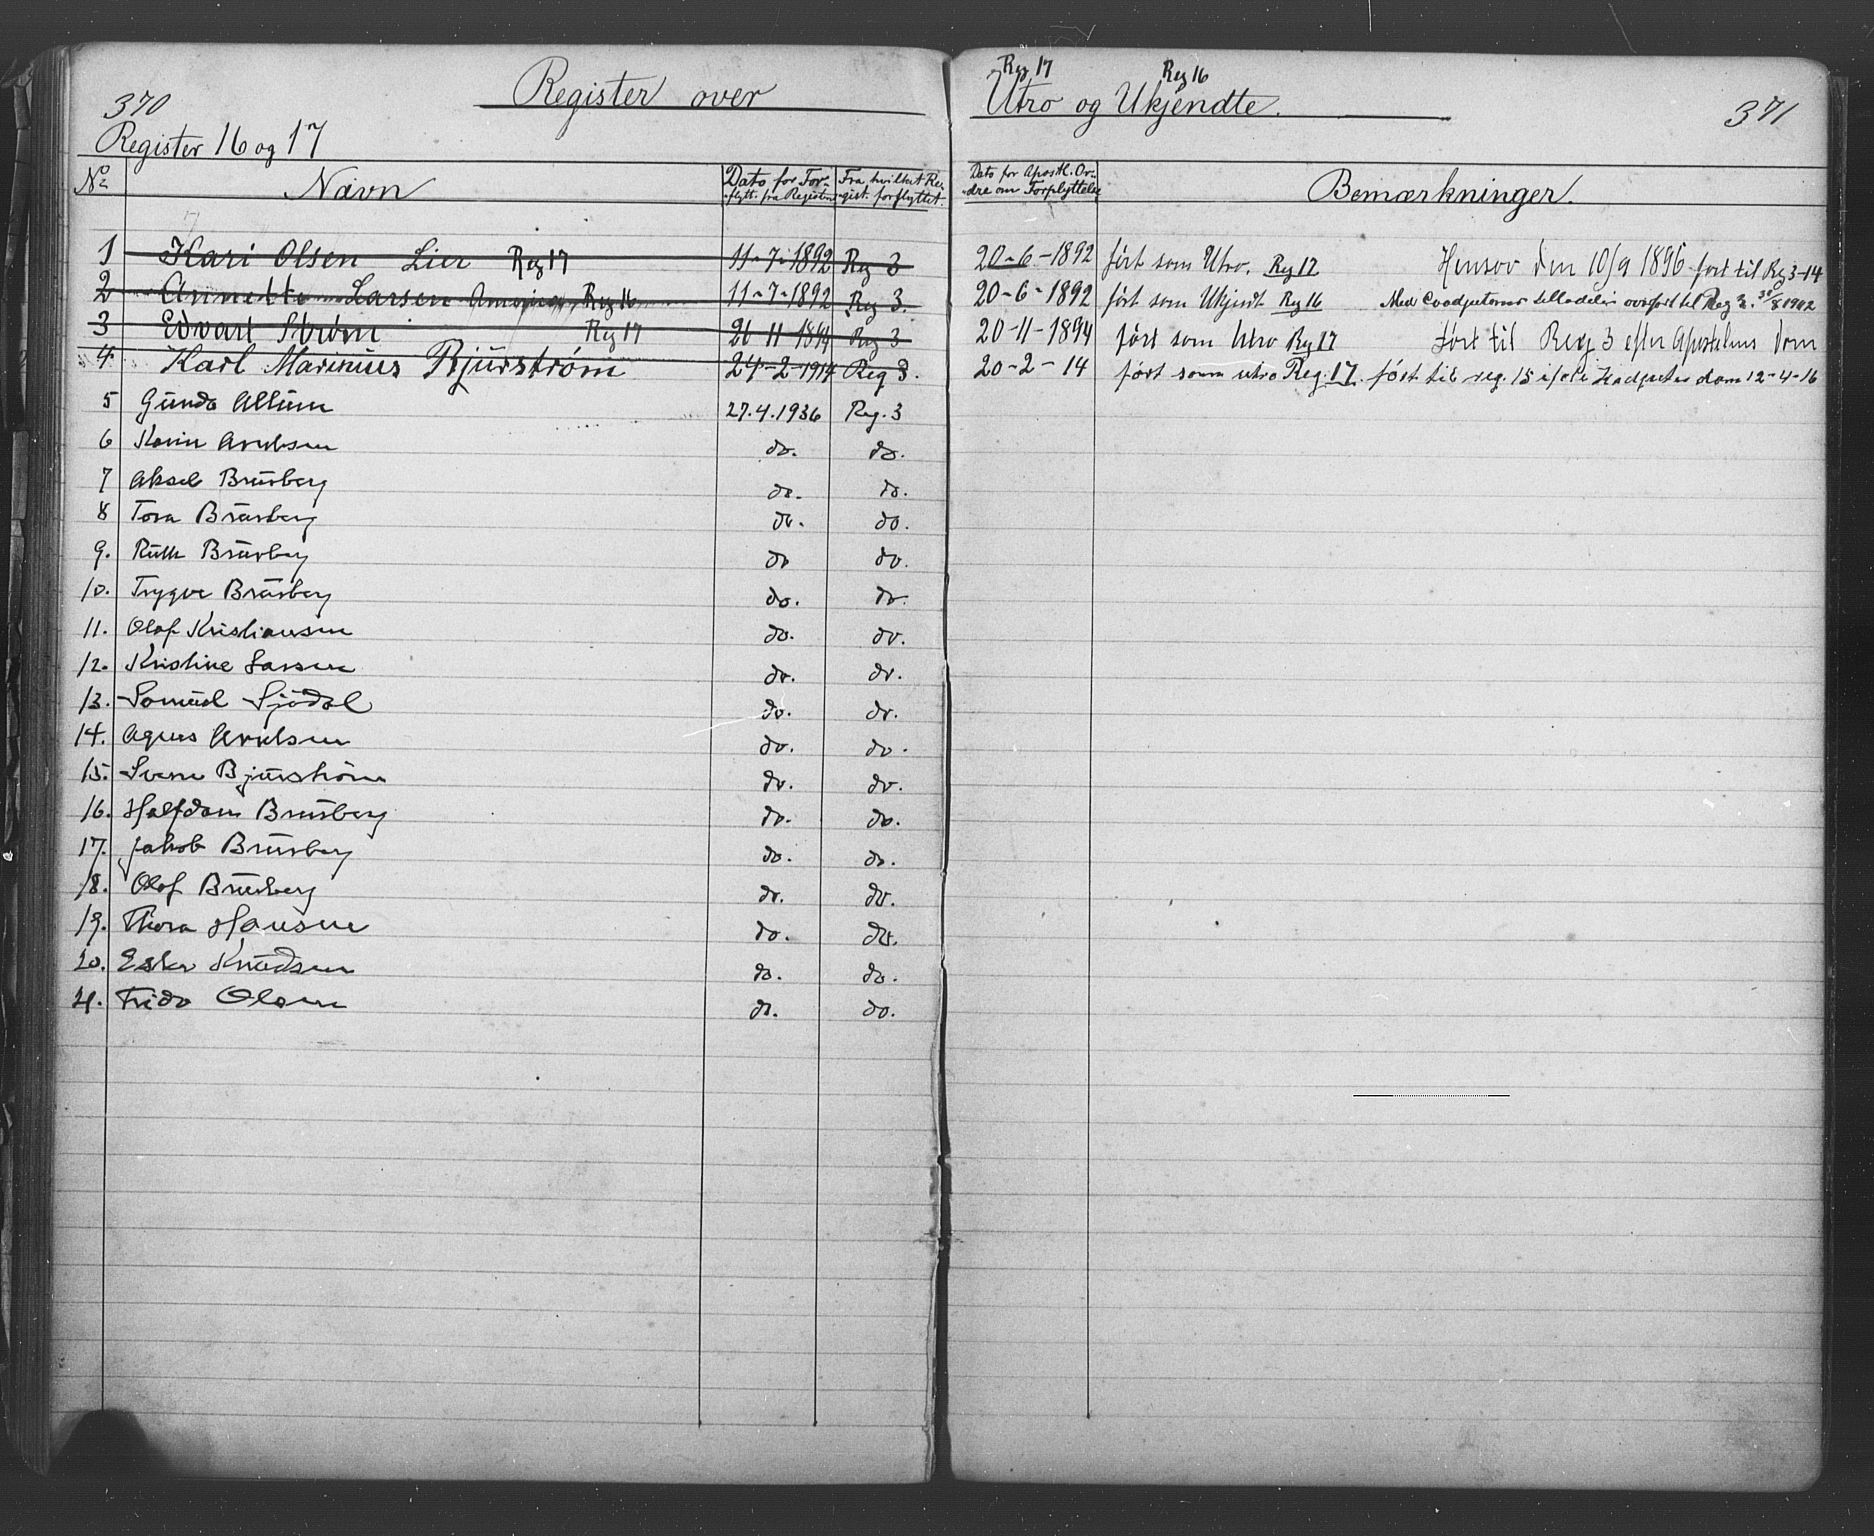 370
Register over
Register 16 og 17
No Navn Dato for Forflytt. fra Registeret Fra hvilket Regist. forflyttet.
1 Kari Olsen Lier Reg 17 11-7-1892 Reg 3
2 Annette Larsen Reg 16 11-7-1892 Reg 3.
3 Edvart Strøm Reg 17 26-11-1894 Reg 3
4 Karl Marinius Bjurstrøm 24-2-1914 Reg 3.
5 Gunda Allum 27.4.1936 Reg. 3
6 Karin Arvesen do. do.
7 Aksel Brusberg do. do.
8 Tora Brusberg do. do.
9. Ruth Brusberg do do.
10. Trygve Brusberg do. do.
11. Olaf Kristiansen do. do.
12. Kristine Larsen do. do.
13. Samuel Sjödal do. do.
14. Agnes Arvesen do. do.
15. Svene Bjurstrøm do. do.
16. Halfdan Brusberg do. do.
17. Jakob Brusberg do. do.
18. Olaf Brusberg do. do.
19. Thora Hansen do. do.
20. Ester Knudsen do. do.
21. Frida Olsen do. do.
Reg 17 Reg 16
Utro og Ukjendte.
371
Dato for Apostl. Ordre om Forflyttelse Bemærkninger.
20-6-1892 ført som Utro. Reg 17 Hensov den 10/9 1896 ført til Reg 3-14
20-6-1892 ført som Ukjendt Reg 16 Med Coadjutorens tilladelse overført til Reg 3. 30/8 1902
20-11-1894 ført som Utro Reg 17 ført til Reg 3 efter Apostelens Dom
20-2-14 ført som utro Reg. 17. ført til reg. 15 dom 12-4-16